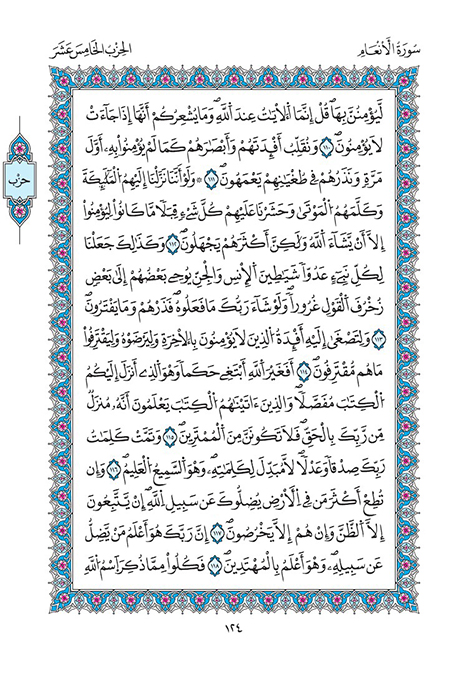 سُورَةُ الْأَنْعَامِ
الحِزْبُ الخَامِسَ عَشَرَ
لَّيُؤْمِنُنَّ بِهَاۖ قُلْ إِنَّمَا اَ۬لْأٓيَٰتُ عِندَ اَ۬للَّهِۖ وَمَا يُشْعِرُكُمْ أَنَّهَا إِذَا جَآءَتْ
لَا يُؤْمِنُونَۖ ١١٠ وَنُقَلِّبُ أَفْـِٕدَتَهُمْ وَأَبْصَٰرَهُمْ كَمَا لَمْ يُؤْمِنُواْ بِهِۦٓ أَوَّلَ
مَرَّةٖ وَنَذَرُهُمْ فِے طُغْيَٰنِهِمْ يَعْمَهُونَۖ ١١١ ۞ وَلَوْ أَنَّنَا نَزَّلْنَا إِلَيْهِمُ اُ۬لْمَلَٰٓئِكَةَ
وَكَلَّمَهُمُ اُ۬لْمَوْتَىٰ وَحَشَرْنَا عَلَيْهِمْ كُلَّ شَےْءٖ قِبَلاٗ مَّا كَانُواْ لِيُؤْمِنُواْ
إِلَّا أَنْ يَّشَآءَ اَ۬للَّهُ وَلَٰكِنَّ أَكْثَرَهُمْ يَجْهَلُونَۖ ١١٢ وَكَذَٰلِكَ جَعَلْنَا
لِكُلِّ نَبِےٓءٍ عَدُوّاٗ شَيَٰطِينَ اَ۬لْإِنسِ وَالْجِنِّ يُوحِے بَعْضُهُمْ إِلَىٰ بَعْضٖ
زُخْرُفَ اَ۬لْقَوْلِ غُرُوراٗۖ وَلَوْ شَآءَ رَبُّكَ مَا فَعَلُوهُۖ فَذَرْهُمْ وَمَا يَفْتَرُونَۖ
١١٣ وَلِتَصْغَىٰ إِلَيْهِ أَفْـِٕدَةُ اُ۬لذِينَ لَا يُؤْمِنُونَ بِالْأٓخِرَةِ وَلِيَرْضَوْهُ وَلِيَقْتَرِفُواْ
مَا هُم مُّقْتَرِفُونَۖ ١١٤ أَفَغَيْرَ اَ۬للَّهِ أَبْتَغِے حَكَماٗ وَهْوَ اَ۬لذِے أَنزَلَ إِلَيْكُمُ
اُ۬لْكِتَٰبَ مُفَصَّلاٗۖ وَالذِينَ ءَاتَيْنَٰهُمُ اُ۬لْكِتَٰبَ يَعْلَمُونَ أَنَّهُۥ مُنزَلٞ
مِّن رَّبِّكَ بِالْحَقِّۖ فَلَا تَكُونَنَّ مِنَ اَ۬لْمُمْتَرِينَۖ ١١٥ وَتَمَّتْ كَلِمَٰتُ
رَبِّكَ صِدْقاٗ وَعَدْلاٗۖ لَّا مُبَدِّلَ لِكَلِمَٰتِهِۦۖ وَهْوَ اَ۬لسَّمِيعُ اُ۬لْعَلِيمُۖ ١١٦ وَإِن
تُطِعْ أَكْثَرَ مَن فِے اِ۬لْأَرْضِ يُضِلُّوكَ عَن سَبِيلِ اِ۬للَّهِۖ إِنْ يَّتَّبِعُونَ
إِلَّا اَ۬لظَّنَّ وَإِنْ هُمْ إِلَّا يَخْرُصُونَۖ ١١٧ إِنَّ رَبَّكَ هُوَ أَعْلَمُ مَنْ يَّضِلُّ
عَن سَبِيلِهِۦۖ وَهْوَ أَعْلَمُ بِالْمُهْتَدِينَۖ ١١٨ فَكُلُواْ مِمَّا ذُكِرَ اَ۪سْمُ اُ۬للَّهِ
حزب
١٢٤